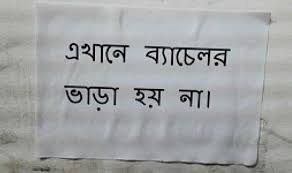 এখানে ব্যাচেলর
ভাড়া হয় না।